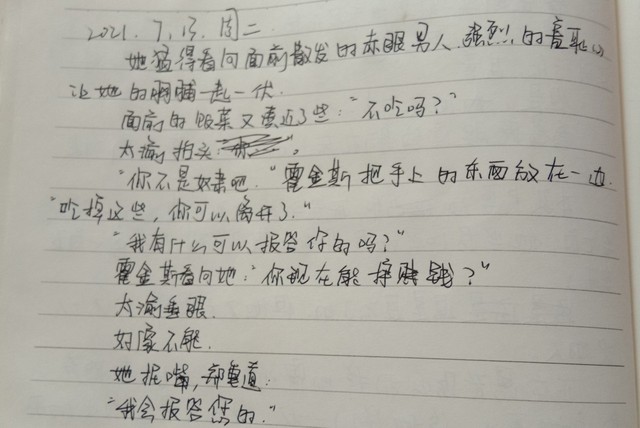 2021.7.13.周二.
她猛得看向面前散发的赤眼男人.强烈的羞耻心
让她的胸脯一起一伏.
面前的饭菜又凑近了些:"不吃吗?"
太渝抬头
"你不是奴隶吧."霍金斯把手上的东西放在一边.
"吃掉这些,你可以离开了."
"我有什么可以报答你的吗?"
霍金斯看向她:"你现在能挣赚钱?"
太渝垂眼.
好像不能.
她抿嘴,郑重道:
"我会报答您的."